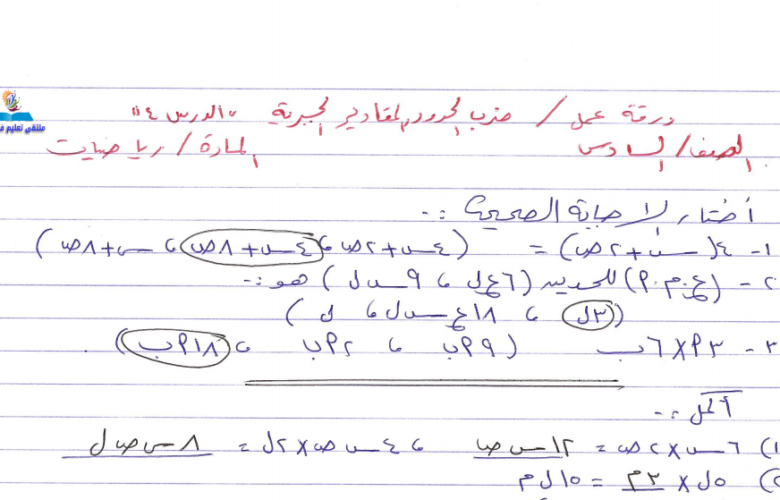 ملتقى تعليم ف
ورقة عمل / ضرب الحدود والمقادير الجبرية "الدرس ٤"
الصف / السادس المادة / رياضيات
أختار الإجابة الصحيحة :-
١- ٤(س+٢ص) = (٤س+٢ص ، ٤س+٨ص ، س+٨ص)
٢- (ع.م.أ) للحدين (٦ع ل ، ٩س ل) هو :-
(٣ل ، ١٨ع س ل ، ل)
٣- ٣أ×٦ب (٩أب ، ٢أب ، ١٨أب)
أكمل :-
١) ٦س×٢ص = ١٢س ص ، ٤س ص×٢ل = ٨س ص ل
٢) ٥ل × ٢م = ١٠ل م